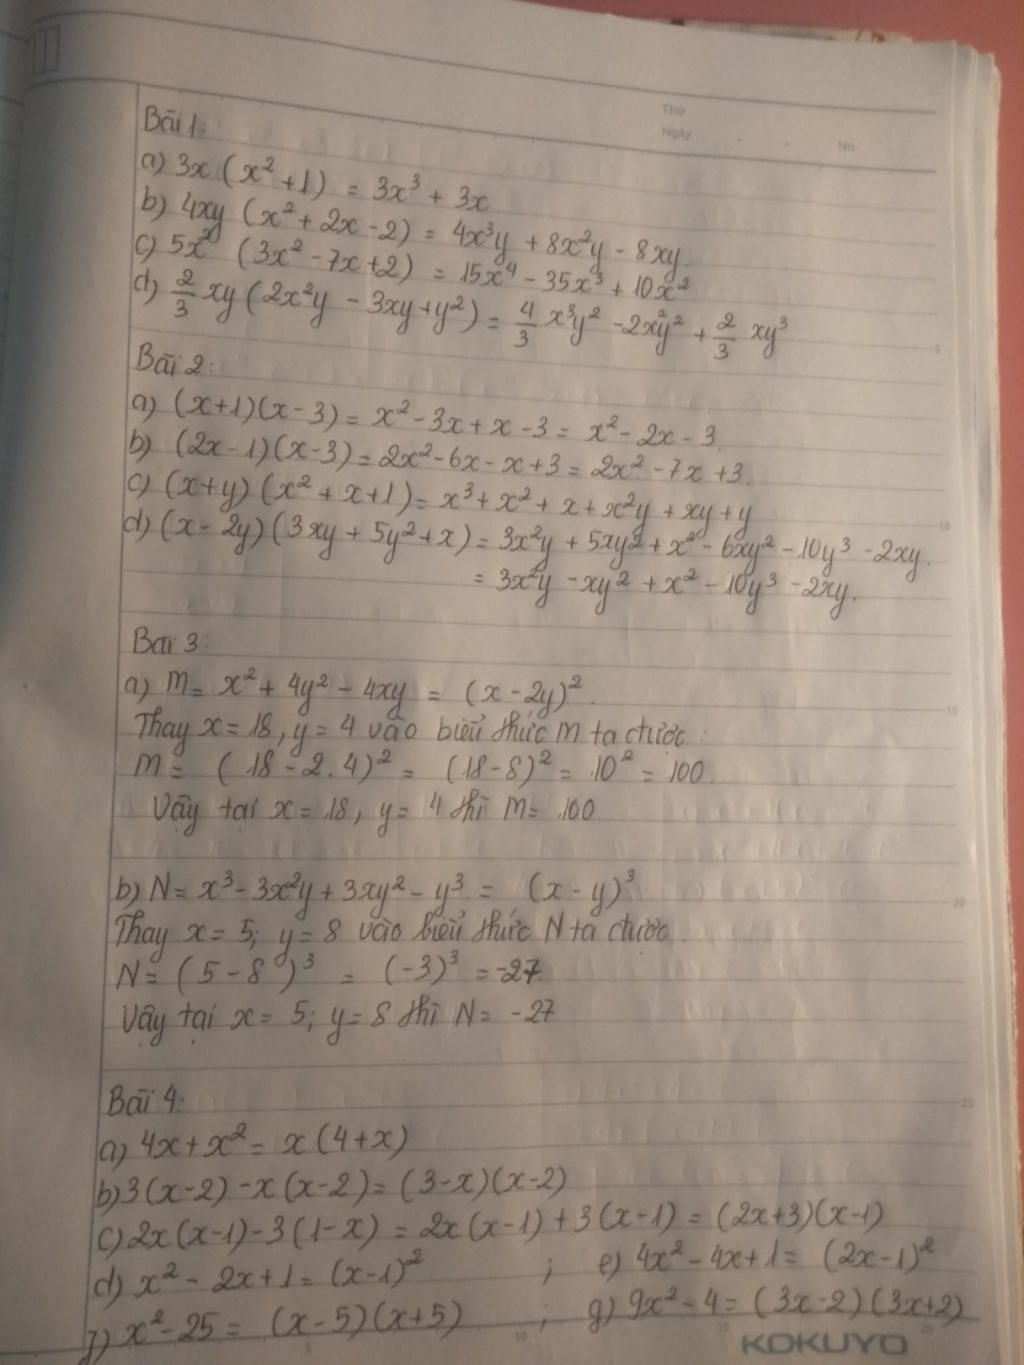 Thứ
Ngày
No.
Bài 1:
a) 3x (x² + 1) = 3x³ + 3x
b) 4xy (x² + 2x - 2) = 4x³y + 8x²y - 8xy.
c) 5x² (3x² - 7x + 2) = 15x⁴ - 35x³ + 10x²
d) 2/3 xy (2x²y - 3xy + y²) = 4/3 x³y² - 2x²y² + 2/3 xy³
Bài 2:
a) (x+1)(x-3) = x² - 3x + x - 3 = x² - 2x - 3.
b) (2x-1)(x-3) = 2x² - 6x - x + 3 = 2x² - 7x + 3.
c) (x+y)(x² + x + 1) = x³ + x² + x + x²y + xy + y
d) (x-2y)(3xy + 5y² + x) = 3x²y + 5xy² + x² - 6xy² - 10y³ - 2xy.
= 3x²y - xy² + x² - 10y³ - 2xy.
Bài 3:
a) M = x² + 4y² - 4xy = (x-2y)².
Thay x = 18, y = 4 vào biểu thức M ta được:
M = (18 - 2.4)² = (18-8)² = 10² = 100.
Vậy tại x = 18, y = 4 thì M = 100
b) N = x³ - 3x²y + 3xy² - y³ = (x-y)³
Thay x = 5; y = 8 vào biểu thức N ta được.
N = (5-8)³ = (-3)³ = -27.
Vậy tại x = 5; y = 8 thì N = -27
Bài 4:
a) 4x + x² = x(4+x)
b) 3(x-2) - x(x-2) = (3-x)(x-2)
c) 2x(x-1) - 3(1-x) = 2x(x-1) + 3(x-1) = (2x+3)(x-1)
d) x² - 2x + 1 = (x-1)² ; e) 4x² - 4x + 1 = (2x-1)²
f) x² - 25 = (x-5)(x+5) ; g) 9x² - 4 = (3x-2)(3x+2)
KOKUYO